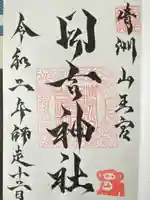 清洲山王宮
日吉神社
令和二年師走十二日